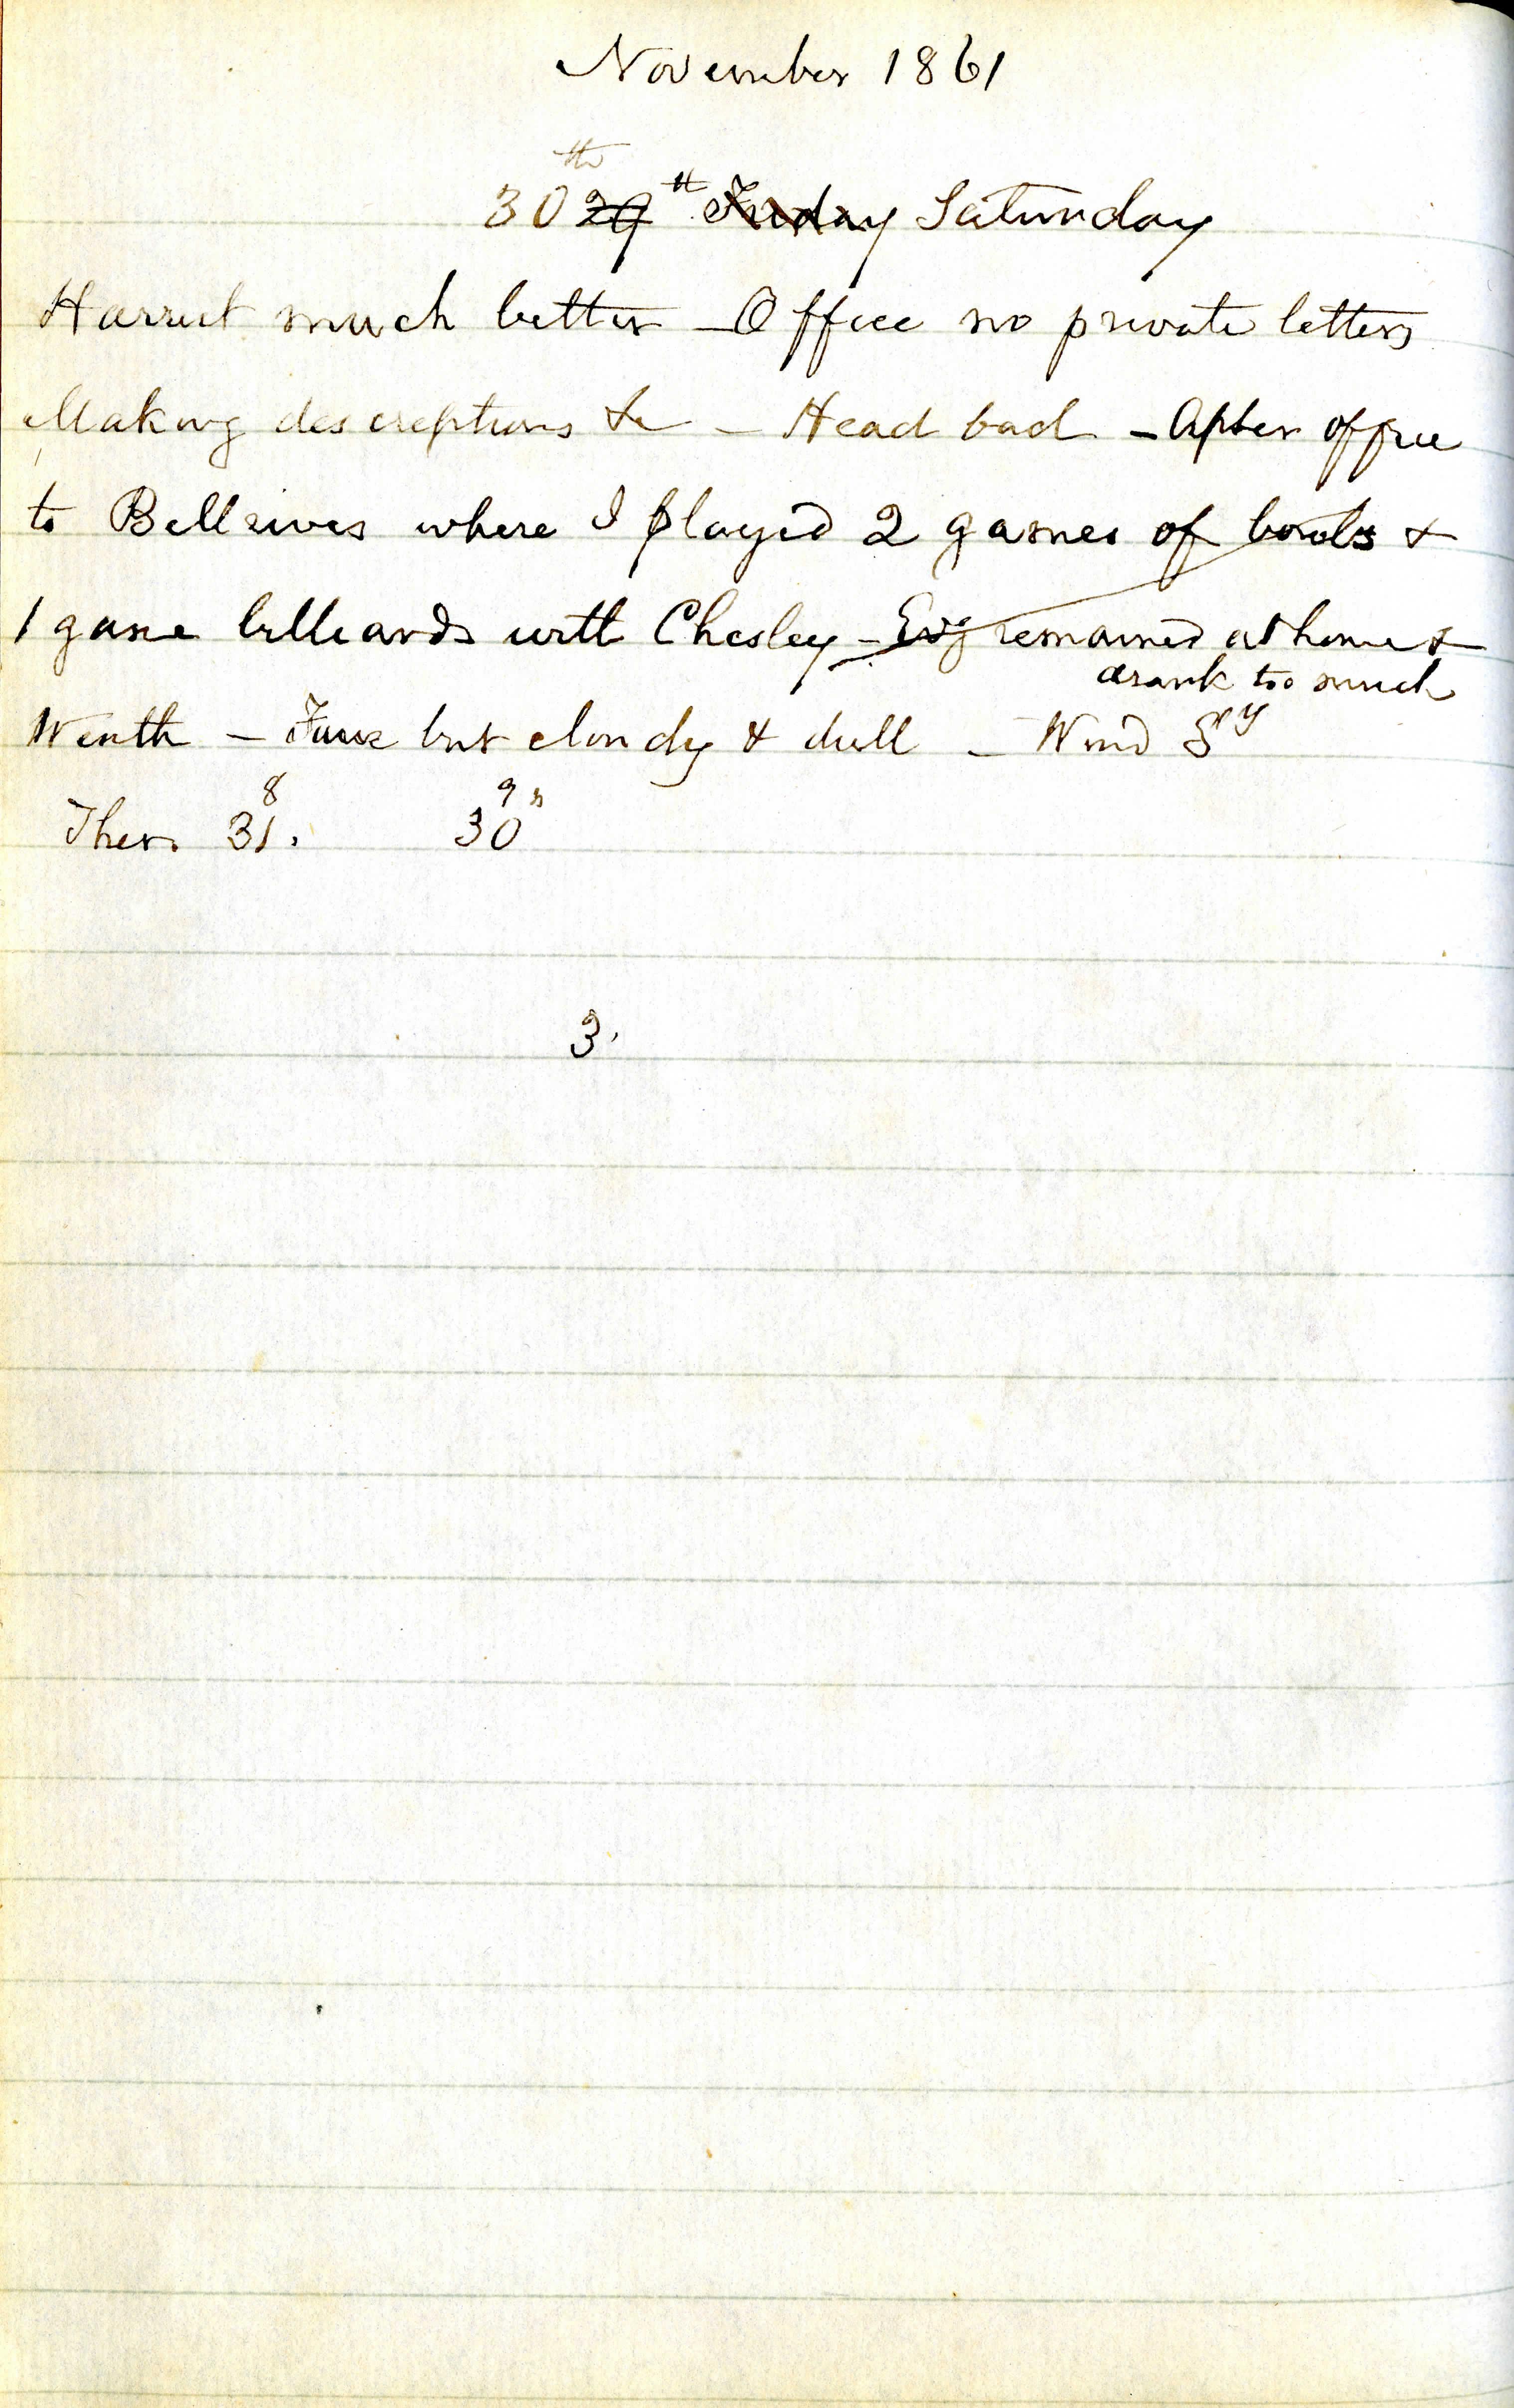 November 1861
30th 29th Friday Saturday
Harriet much better - Office no private letters
Making descreptions &c - Head bad - After office
to Bellrives where I played 2 games of bowls &
1 game billiards with Chesley - Evg remained at home &
drank too much
Weath - Fine but cloudy & dull - Wind Sy
8 9
Ther. 31. 30
3.